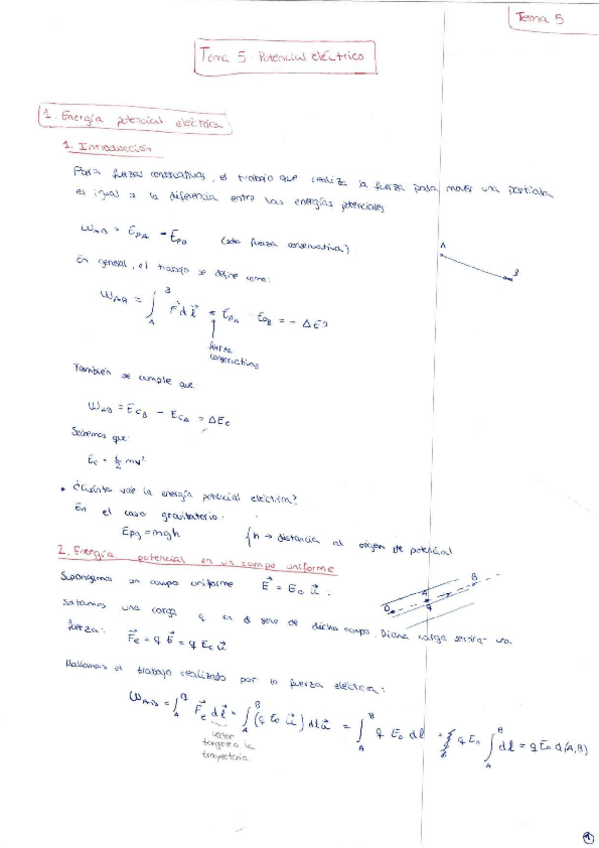 Tema 5
Tema 5 Potencial eléctrico
1. Energía potencial eléctrica
1. Introducción
Para fuerzas conservativas, el trabajo que realiza la fuerza para mover una partícula
es igual a la diferencia entre las energías potenciales
W_AB = E_PA - E_PB (solo fuerza conservativa)
A
B
En general, el trabajo se define como:
W_AB = ∫_A^B F⃗ dl⃗ = E_PA - E_PB = - ΔEp
fuerza
conservativas
También se cumple que:
W_AB = E_CB - E_CA = ΔEc
Sabemos que:
Ec = 1/2 mv²
• ¿Cuánto vale la energía potencial eléctrica?
En el caso gravitatorio.
Epg = mgh { h → distancia al origen de potencial
2. Energía potencial en un campo uniforme
Suponemos un campo uniforme E⃗ = E₀ u⃗.
O A q B
Soltamos una carga q en el seno de dicho campo. Dicha carga sentirá una
fuerza: F⃗e = q E⃗ = q E₀ u⃗
Hallamos el trabajo realizado por la fuerza eléctrica:
W_AB = ∫_A^B F⃗e dl⃗ = ∫_A^B (q E₀ u⃗) dl u⃗ = ∫_A^B q E₀ dl = q E₀ ∫_A^B dl = q E₀ d(A,B)
vector
tangente a la
trayectoria.
1